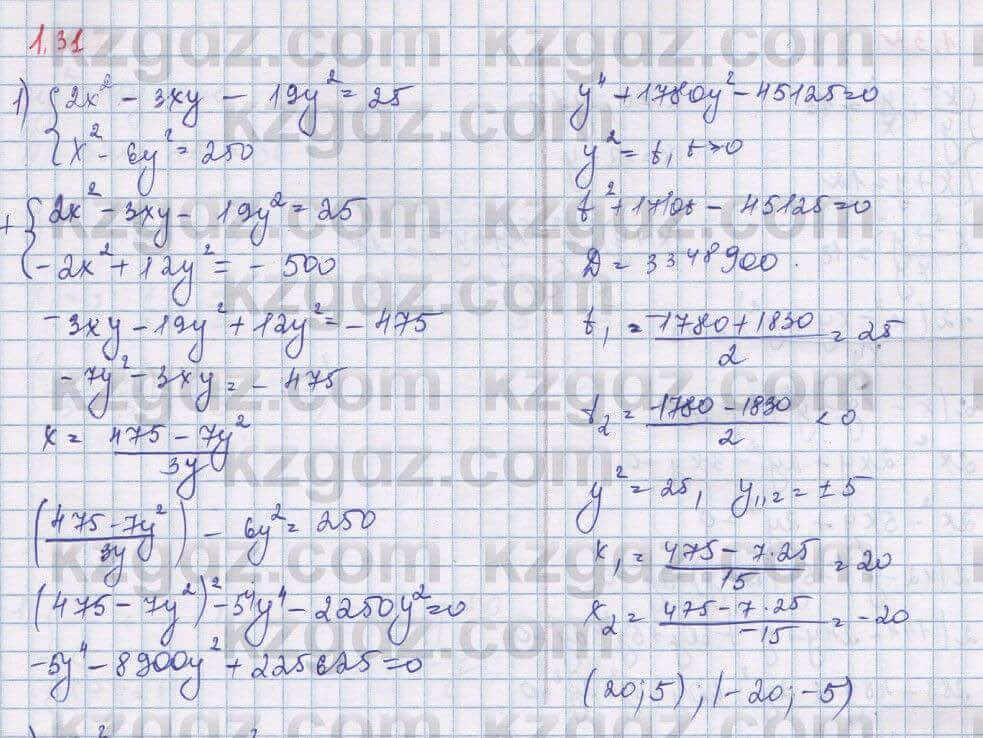 1.31
1) { 2x² - 3xy - 19y² = 25
x² - 6y² = 250
+ { 2x² - 3xy - 19y² = 25
-2x² + 12y² = - 500
-3xy - 19y² + 12y² = - 475
-7y² - 3xy = - 475
x = (475 - 7y²)/3y
((475 - 7y²)/3y) - 6y² = 250
(475 - 7y²)² - 54y⁴ - 2250y² = 0
-5y⁴ - 8900y² + 225625 = 0
y⁴ + 1780y² - 45125 = 0
y² = t, t > 0
t² + 1780t - 45125 = 0
D = 3348900.
t₁ = (-1780 + 1830)/2 = 25
t₂ = (-1780 - 1830)/2 < 0
y² = 25, y₁,₂ = ±5
x₁ = (475 - 7·25)/15 = 20
x₂ = (475 - 7·25)/-15 = -20
(20; 5); (-20; -5)
kzgdz.com